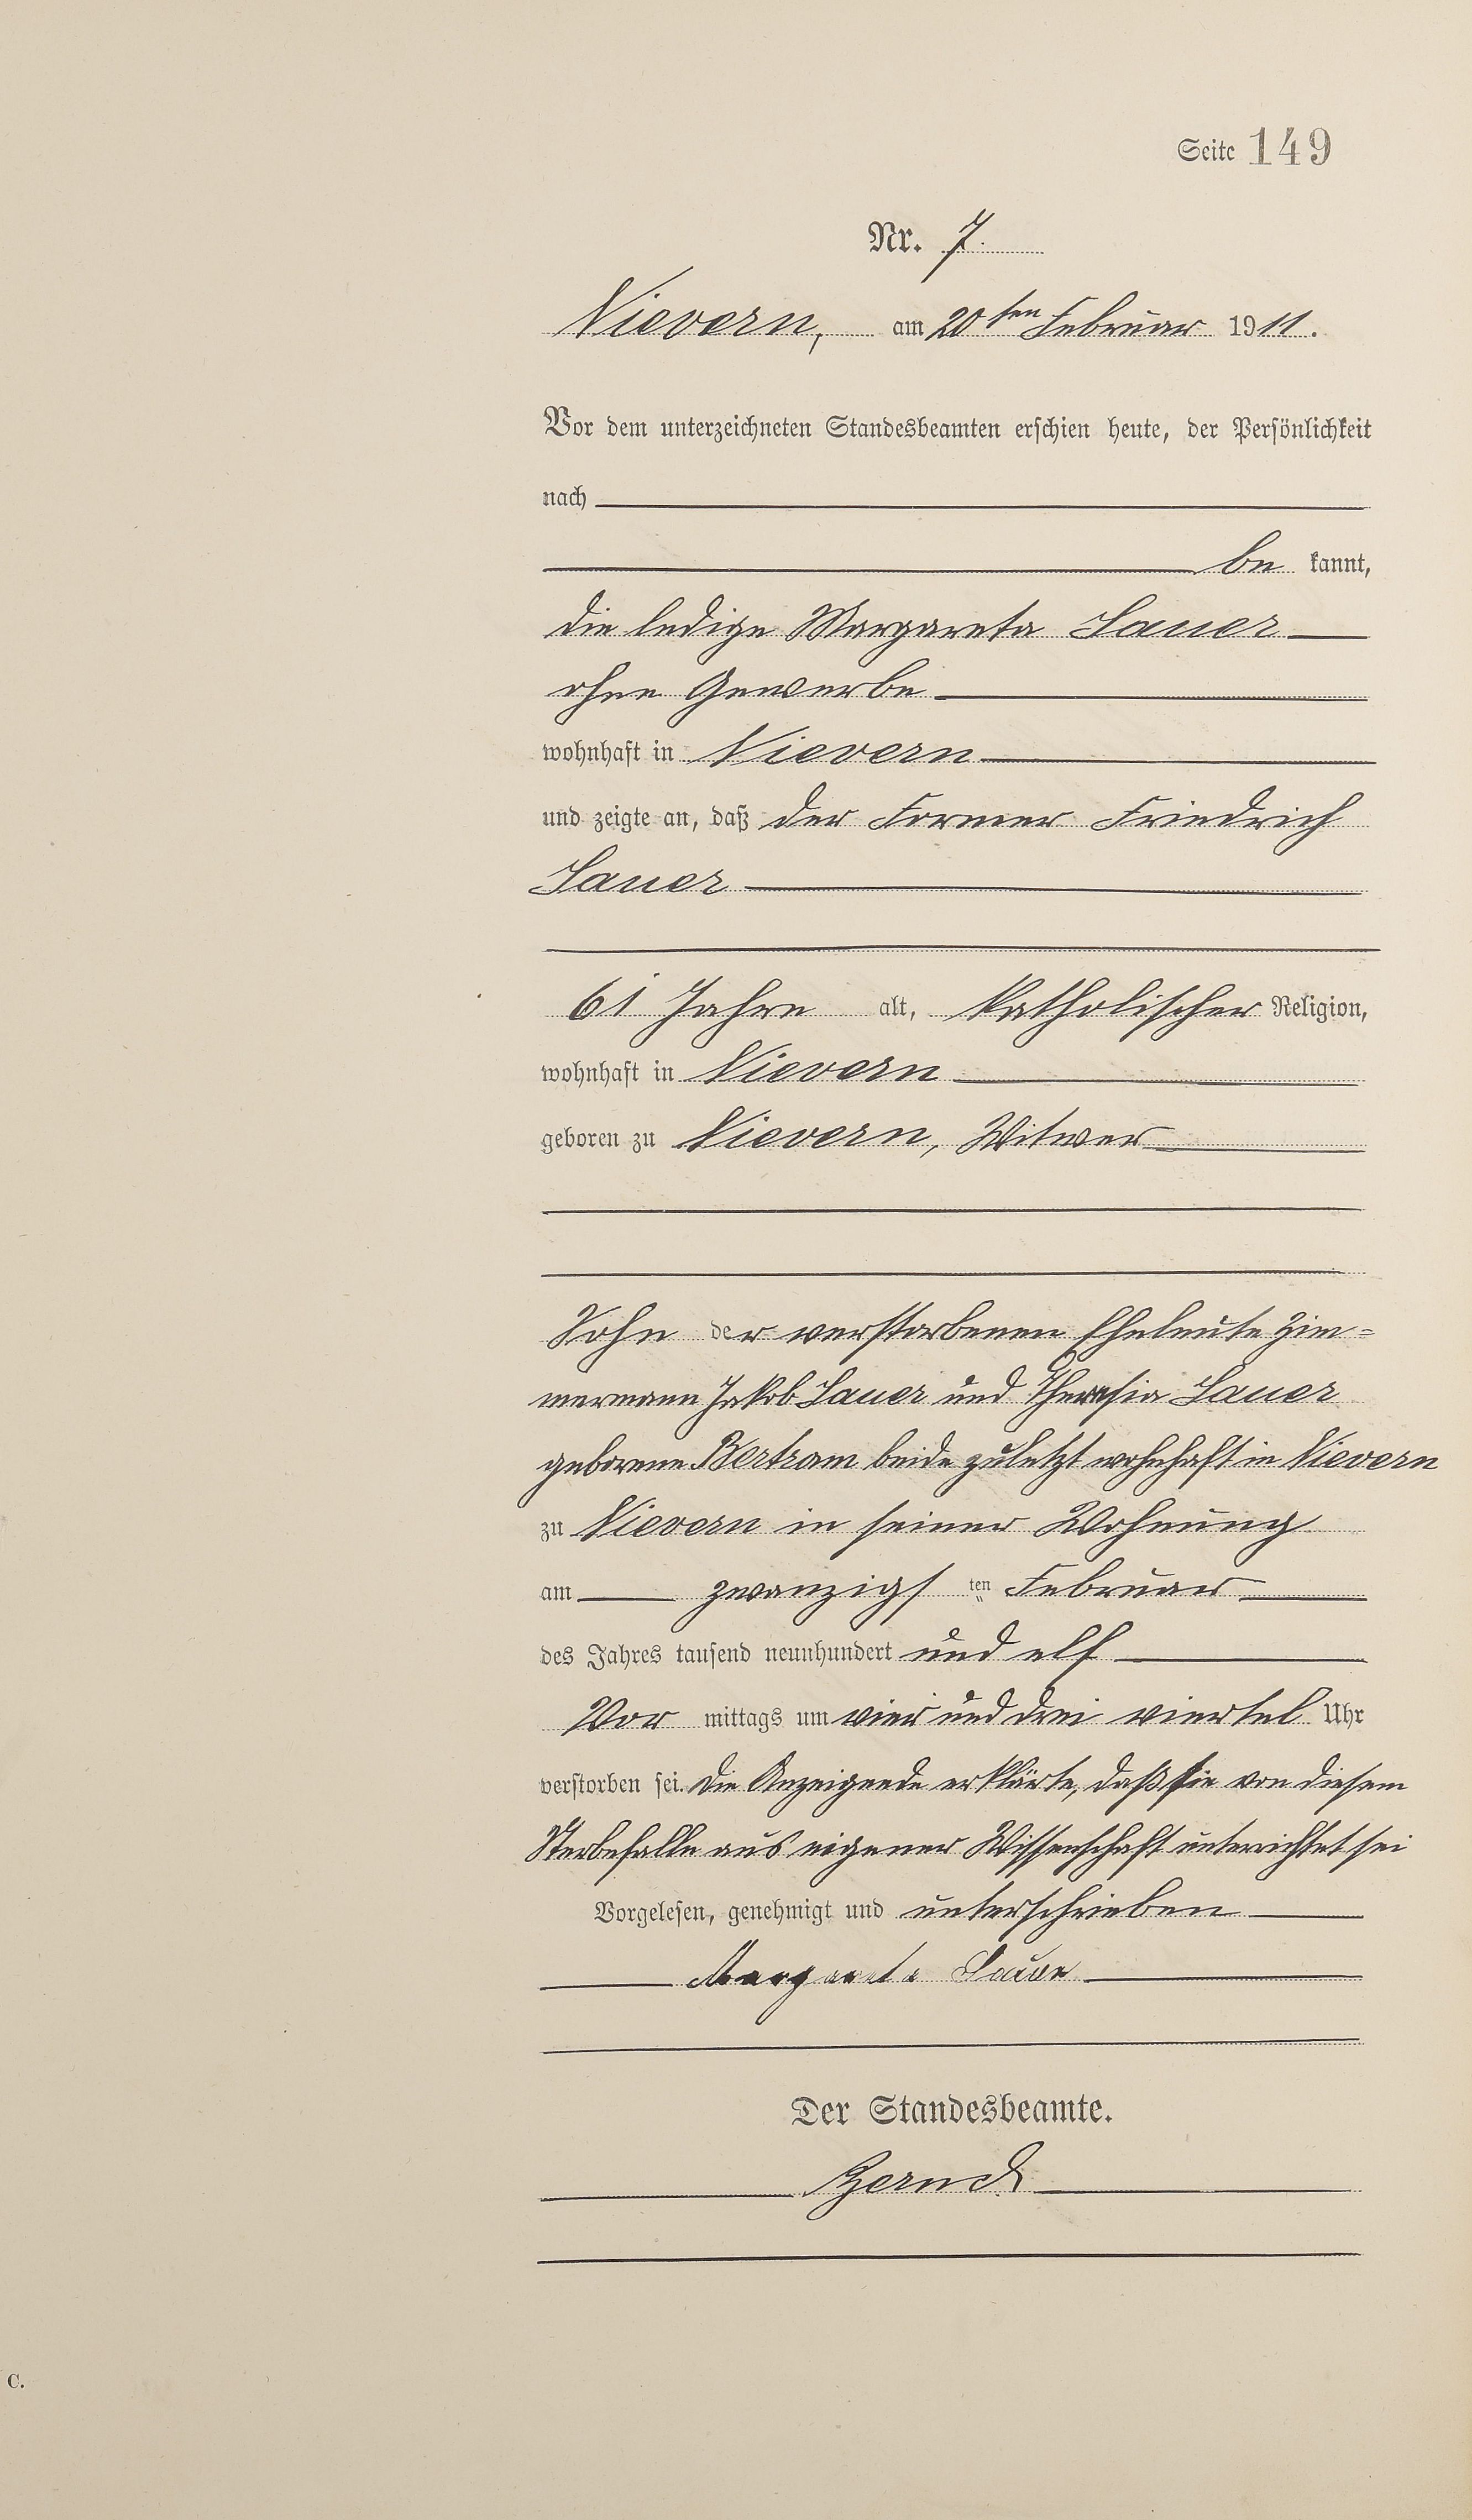 Seite 149
Nr. 7.
Nievern, am 20ten Februar 1911.
Vor dem unterzeichneten Standesbeamten erschien heute, der Persönlichkeit
nach
be kannt,
die ledige Margareta Sauer
ohne Gewerbe
wohnhaft in Nievern
und zeigte an, daß der Former Friedrich
Sauer
61 Jahre alt, katholischer Religion,
wohnhaft in Nievern
geboren zu Nievern, Witwer
Sohn der verstorbenen Eheleute Zim=
mermann Jakob Sauer und Theresia Sauer
geborene Bertram beide zuletzt wohnhaft in Nievern
zu Nievern in seiner Wohnung
am zwanzigs ten Februar
des Jahres tausend neunhundert und elf
Vor mittags um vier und drei viertel Uhr
verstorben sei. Die Anzeigende erklärte, daß sie von diesem
Sterbefalle aus eigener Wissenschaft unterrichtet sei
Vorgelesen, genehmigt und unterschrieben
Margareta Sauer
Der Standesbeamte.
C.